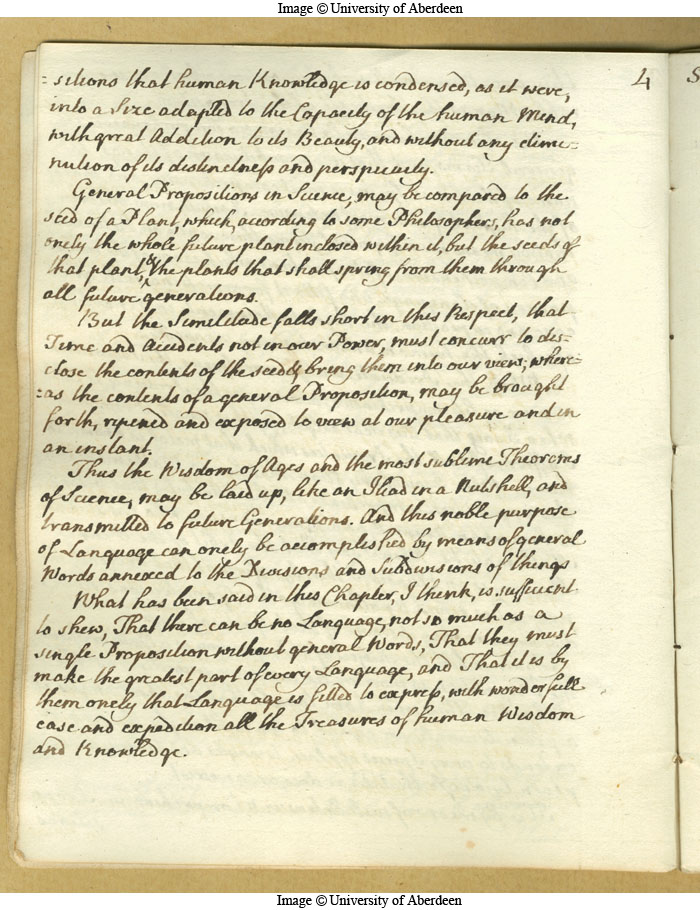 Image © University of Aberdeen
4
S
=sitions that human Knowledge is condensed, as it were,
into a Size adapted to the Capacity of the human Mind,
with great Addition to its Beauty, and without any dimi=
nution of its distinctness and perspicuity.
General Propositions in Science, may be compared to the
seed of a Plant, which, according to some Philosophers, has not
onely the whole future plant inclosed within it, but the seeds of
that plant, & the plants that shall spring from them through
all future generations.
But the Similitude falls short in this Respect, that
Time and Accidents not in our Power, must concurr to dis=
close the contents of the seed & bring them into our view; where=
=as the contents of a general Proposition, may be brought
forth, ripened and exposed to view at our pleasure and in
an instant.
Thus the Wisdom of Ages and the most sublime Theorems
of Science, may be laid up, like an Iliad in a Nutshell, and
transmitted to future Generations. And this noble purpose
of Language can onely be accomplished by means of general
Words annexed to the Divisions and Subdivisions of things
What has been said in this Chapter, I think, is sufficient
to shew, That there can be no Language, not so much as a
single Proposition without general Words, That they must
make the greatest part of every Language, and That it is by
them onely that Language is fitted to express, with wonderfull
ease and expedition all the Treasures of human Wisdom
and Knowledge.
Image © University of Aberdeen